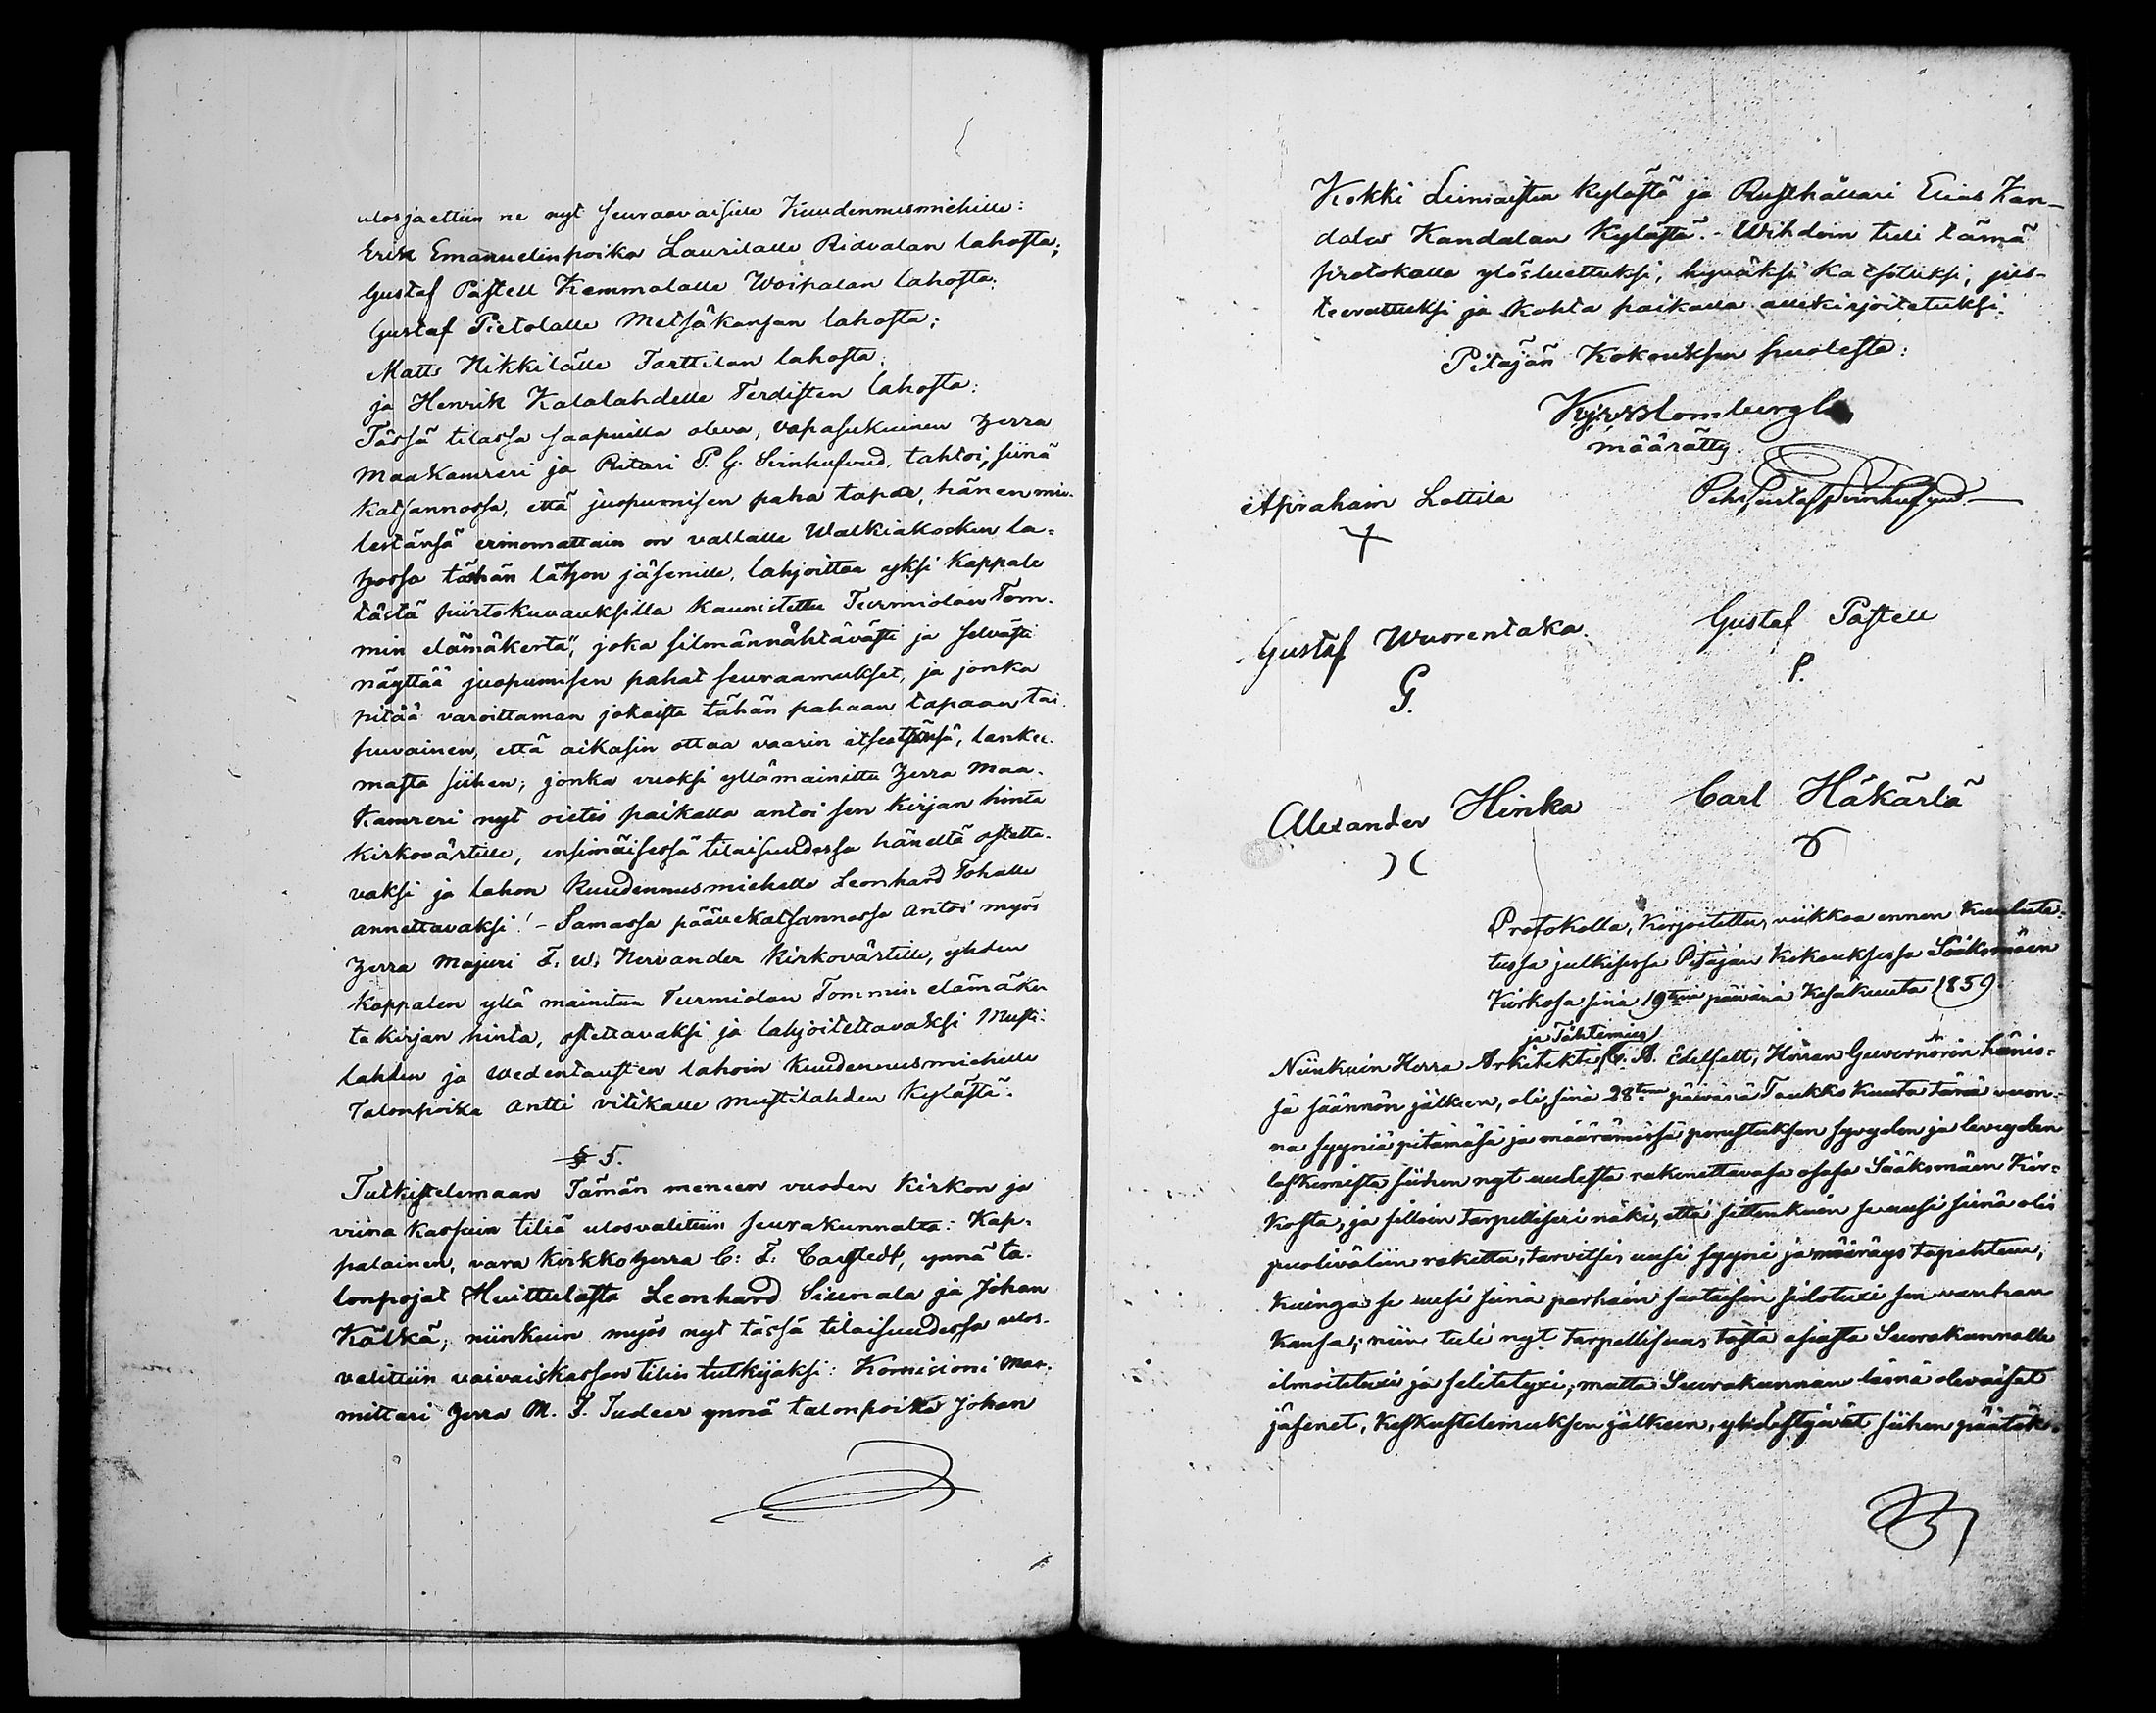 ulosjaettiin ne nyt seuraavaisille Kuudennusmiehille:
Erik Emanuelinpoika Laurilalle Ridvalan lahosta;
Gustaf Pastell Kemmolalle Woipalan lahosta;
Gustaf Pietolalle Metsäkansan lahosta;
Matts Nikkilälle Tarttilan lahosta;
ja Henrik Kalalahdelle Terdisten lahosta:
Tässä tilassa saapuilla oleva, vapasukuinen Herra
Maakamreri ja Ritari P. G. Svinhufvud, tahtoi, siinä
katsannossa, että juopumisen paha tapa, hänen mie-
lestänsä erinomattain on vallalle Walkiakosken la-
hossa tähän lahon jäsenille, lahjoittaa yksi kappale
tästä piirtokuvauksilla kaunistettu Turmiolan Tom-
min elämäkerta", joka silmännähtävästi ja selvästi
näyttää juopumisen pahat seuraamukset, ja jonka
pitää varoittaman jokaista tähän pahaan tapaan tai-
puvainen, että aikasin ottaa vaarin itsestänsä, lanke-
masta siihen; jonka vuoksi yllämainittu Herra Maa-
Kamreri nyt oietis paikalla antoi sen kirjan hinta
kirkovärtille, ensimäisessä tilaisuudessa häneltä ostetta-
vaksi ja lahon Kuudennusmiehelle Leonhard Tohalle
annettavaksi! - Samassa päällekatsannossa antoi myös
Herra Majuri F. W. Nervander Kirkovärtille, yhden
kappalen yllä mainitun Turmiolan Tommin elämäker-
ta kirjan hinta, ostettavaksi ja lahjoitettavaksi Musti-
lahden ja Wedentaustan lahoin Kuudennusmiehelle
Talonpoika Antti Vitikalle Mustilahden Kylästä.
§ 5.
Tutkistelemaan Tämän meneen vuoden Kirkon ja
viina kassain tiliä ulosvalittiin seurakunnalta: Kap-
palainen, vara Kirkkoherra C: F: Carstedt, ynnä ta-
lonpojat Huittulasta Leonhard Siunala ja Johan
Kälkä, niinkuin myös nyt tässä tilaisuudessa ulos-
valittiin vaivaiskassan tilin tutkijaksi: Komisioni maa-
mittari Herra M. F. Tudeer ynnä talonpoika Johan
Kokki Liuniaisten kylästä ja Rusthållari Elias Kan-
dola Kandolan Kylästä. - Wihdoin tuli tämä
protokolla ylösluettuksi, hyväksi katsotuksi, jus-
teerattuksi ja kohta paikalla allekirjoitetuksi.
Pitäjän Kokouksen puolesta:
määrätty.
Aprahain Lottila
Pehr Gustaf Svinhufvud
Gustaf Wuorentaka.
G.
Gustaf Pastell
P.
Alexander Hinka
Carl Häkärlä
Protokolla, Kirjoitettu, viikkoa ennen kuulute-
tussa julkisessa Pitäjän Kokouksessa Sääksmäen
Kirkosa sinä 19tenä päivänä Kesäkuuta 1859.
ja Tähtimies
Niinkuin Herra Arkitekti C. A. Edelfelt, Herran Guvernörin hänis-
sä säännön jälkeen, oli, sinä 28tena päivänä Toukko Kuuta tänä vuon-
na syyniä pitämäsä ja määrämässä perustuksen syvyden ja leveyden
laskemista siihen nyt uudesta rakenettavasa osasa Sääksmäen Kir-
kosta, ja silloin tarpelliseri näki, että sittenkuin se uusi seinä olis
puoliväliin rakettu, tarvitsis uusi syyni ja määräys tapahtua,
kuinga se uusi seinä parhain saataisiin sidotuxi sen vanhan
kansa; niin tuli nyt tarpellisuus tästä asiasta Seurakunnalle
ilmoitetuxi ja selitetyxi; mutta Seurakunnan läsnä olevaiset
jäsenet, keskustelemuksen jälkeen, yhdistyivät siihen päätök-